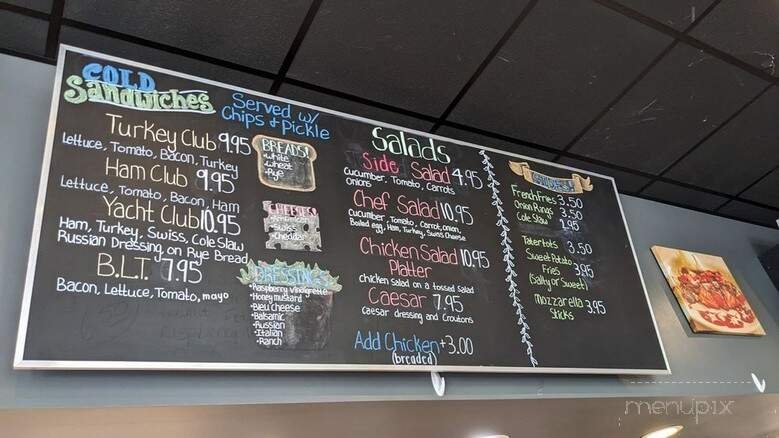 COLD
Sandwiches
Served w/
Chips & Pickle
Turkey Club 9.95
Lettuce, Tomato, Bacon, Turkey
Ham Club 9.95
Lettuce, Tomato, Bacon, Ham
Yacht Club 10.95
Ham, Turkey, Swiss, Cole Slaw
Russian Dressing, on Rye Bread
B.L.T. 7.95
Bacon, Lettuce, Tomato, mayo
BREADS!
•White
•Wheat
•Rye
CHEESES!
•American
•Swiss
•Cheddar
DRESSINGS!
•Raspberry Vinaigrette
•Honey mustard
•Bleu Cheese
•Balsamic
•Russian
•Italian
•Ranch
Salads
Side Salad 4.95
Cucumber, Tomato, Carrots,
Onions
Chef Salad 10.95
Cucumber, Tomato, Carrot, onion,
Boiled egg, Ham, Turkey, Swiss Cheese
Chicken Salad 10.95
Platter
chicken Salad on a tossed Salad
Caesar 7.95
Caesar dressing and Croutons
Add Chicken +3.00
(breaded)
SIDES!
French fries 3.50
Onion Rings 3.50
Cole Slaw 1.95
Tater tots 3.50
Sweet Potato
Fries 3.95
(Salty or Sweet)
Mozzarella 3.95
Sticks
menupix